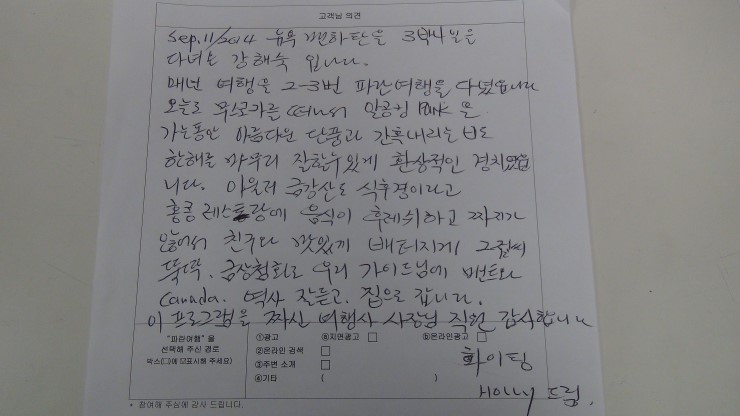 고객님 의견
Sep.11/2014 뉴욕 맨하탄을 3박4일을
다녀온 강해숙 입니다.
매년 여행을 2-3번 파란여행을 다녔습니다
오늘로 무스코카를 떠나서 알콩퀸 Park 을
가는동안 아름다운 단풍과 간혹내리는 비도
한해를 마무리 잘할수있게 환상적인 경치였습
니다. 아울러 금강산도 식후경이라고
홍콩 레스토랑에 음식이 후레쉬하고 짜지가
않어서 친구와 맛있게 배터지게 그릇씩
뚝딱. 금상첨화로 우리 가이드님에 멘트와
Canada. 역사 잘듣고. 집으로 갑니다.
이 프로그램을 짜신 여행사 사장님 직원 감사합니다
"파란여행" 을
선택해 주신 경로
박스(□)에 표시해 주세요)
①광고 ⓐ지면광고 □ ⓑ온라인광고 □
②온라인 검색 □
③주변 소개 □
④기타 ( )
화이팅
Holly 드림.
* 참여해 주심에 감사 드립니다.